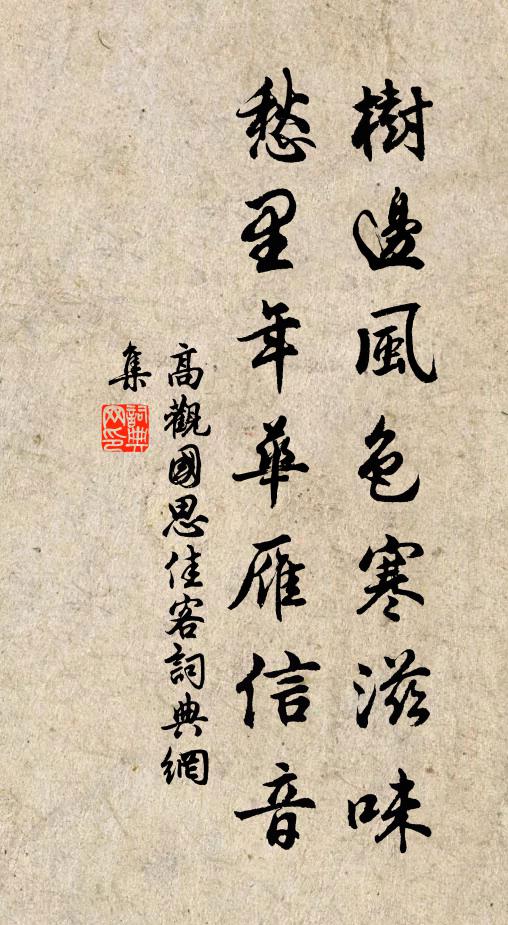 樹邊風色寒滋味
愁里年華雁信音
高觀國思佳客詞典網
集
詞典网印